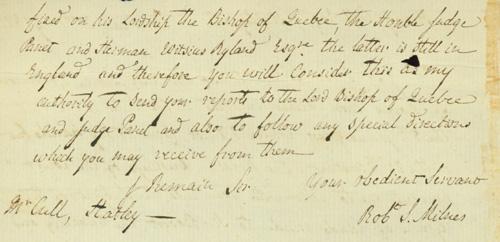 fixed on his Lordship the Bishop of Quebec, the Honble Judge
Panet and Herman Witsius Ryland Esqre the latter is still in
England and therefore you will Consider this as my
authority to Send your reports to the Lord Bishop of Quebec
and Judge Panet and also to follow any Special directions
which you may receive from them
I Remain Sir Your Obedient Servant
Mr Cull, Hatley— Robt S. Milnes